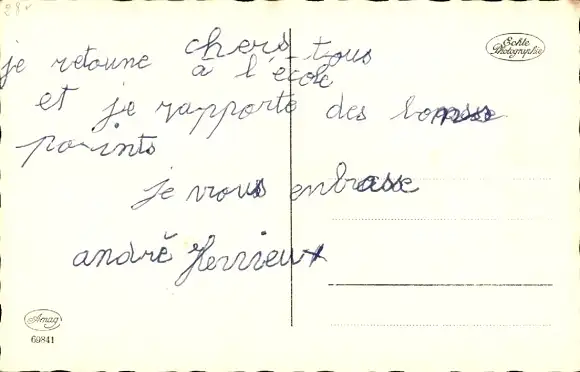 chers tous
je retoune à l'école
et je rapporte des bonsse
points
je vous enbrasse
andré Herrieux
Echte
Photographie
Amag
60841